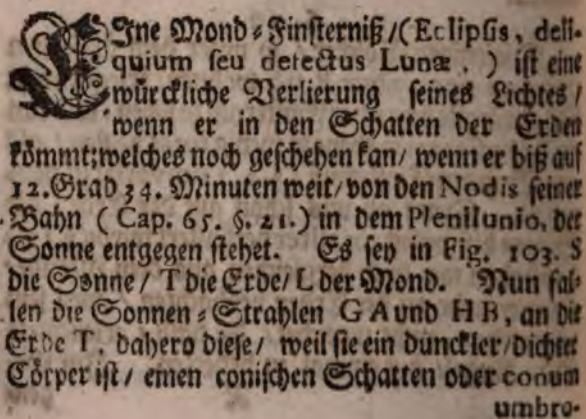 EJne Mond-Finsterniß/(Eclipsis, deli-
quium seu detectus Lunæ. ) ist eine
würckliche Verlierung seines Lichtes/
wenn er in den Schatten der Erden
kömmt; welches noch geschehen kan/ wenn er biß auf
12. Grad 34. Minuten weit/ von den Nodis seiner
Bahn ( Cap. 65. §. 21.) in dem Plenilunio, der
Sonne entgegen stehet. Es sey in Fig. 103. S
die Sonne/ T die Erde/ L der Mond. Nun fal-
len die Sonnen-Strahlen G A und H B, an die
Erde T. dahero diese/ weil sie ein dunckler/ dichter
Cörper ist/ einen conischen Schatten oder conum
umbra-